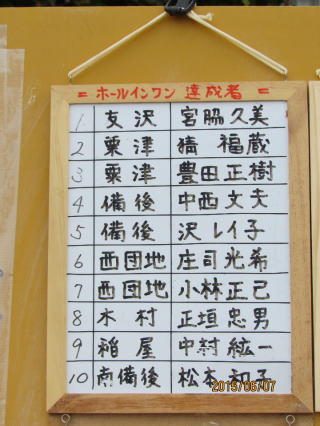 = ホールインワン 達成者 =
1 友沢 宮脇久美
2 粟津 猜 福蔵
3 粟津 豊田正樹
4 備後 中西文夫
5 備後 沢レイ子
6 西団地 庄司光希
7 西団地 小林正己
8 木村 正垣忠男
9 稲屋 中村紘一
10 南備後 松本和子
2015/06/07